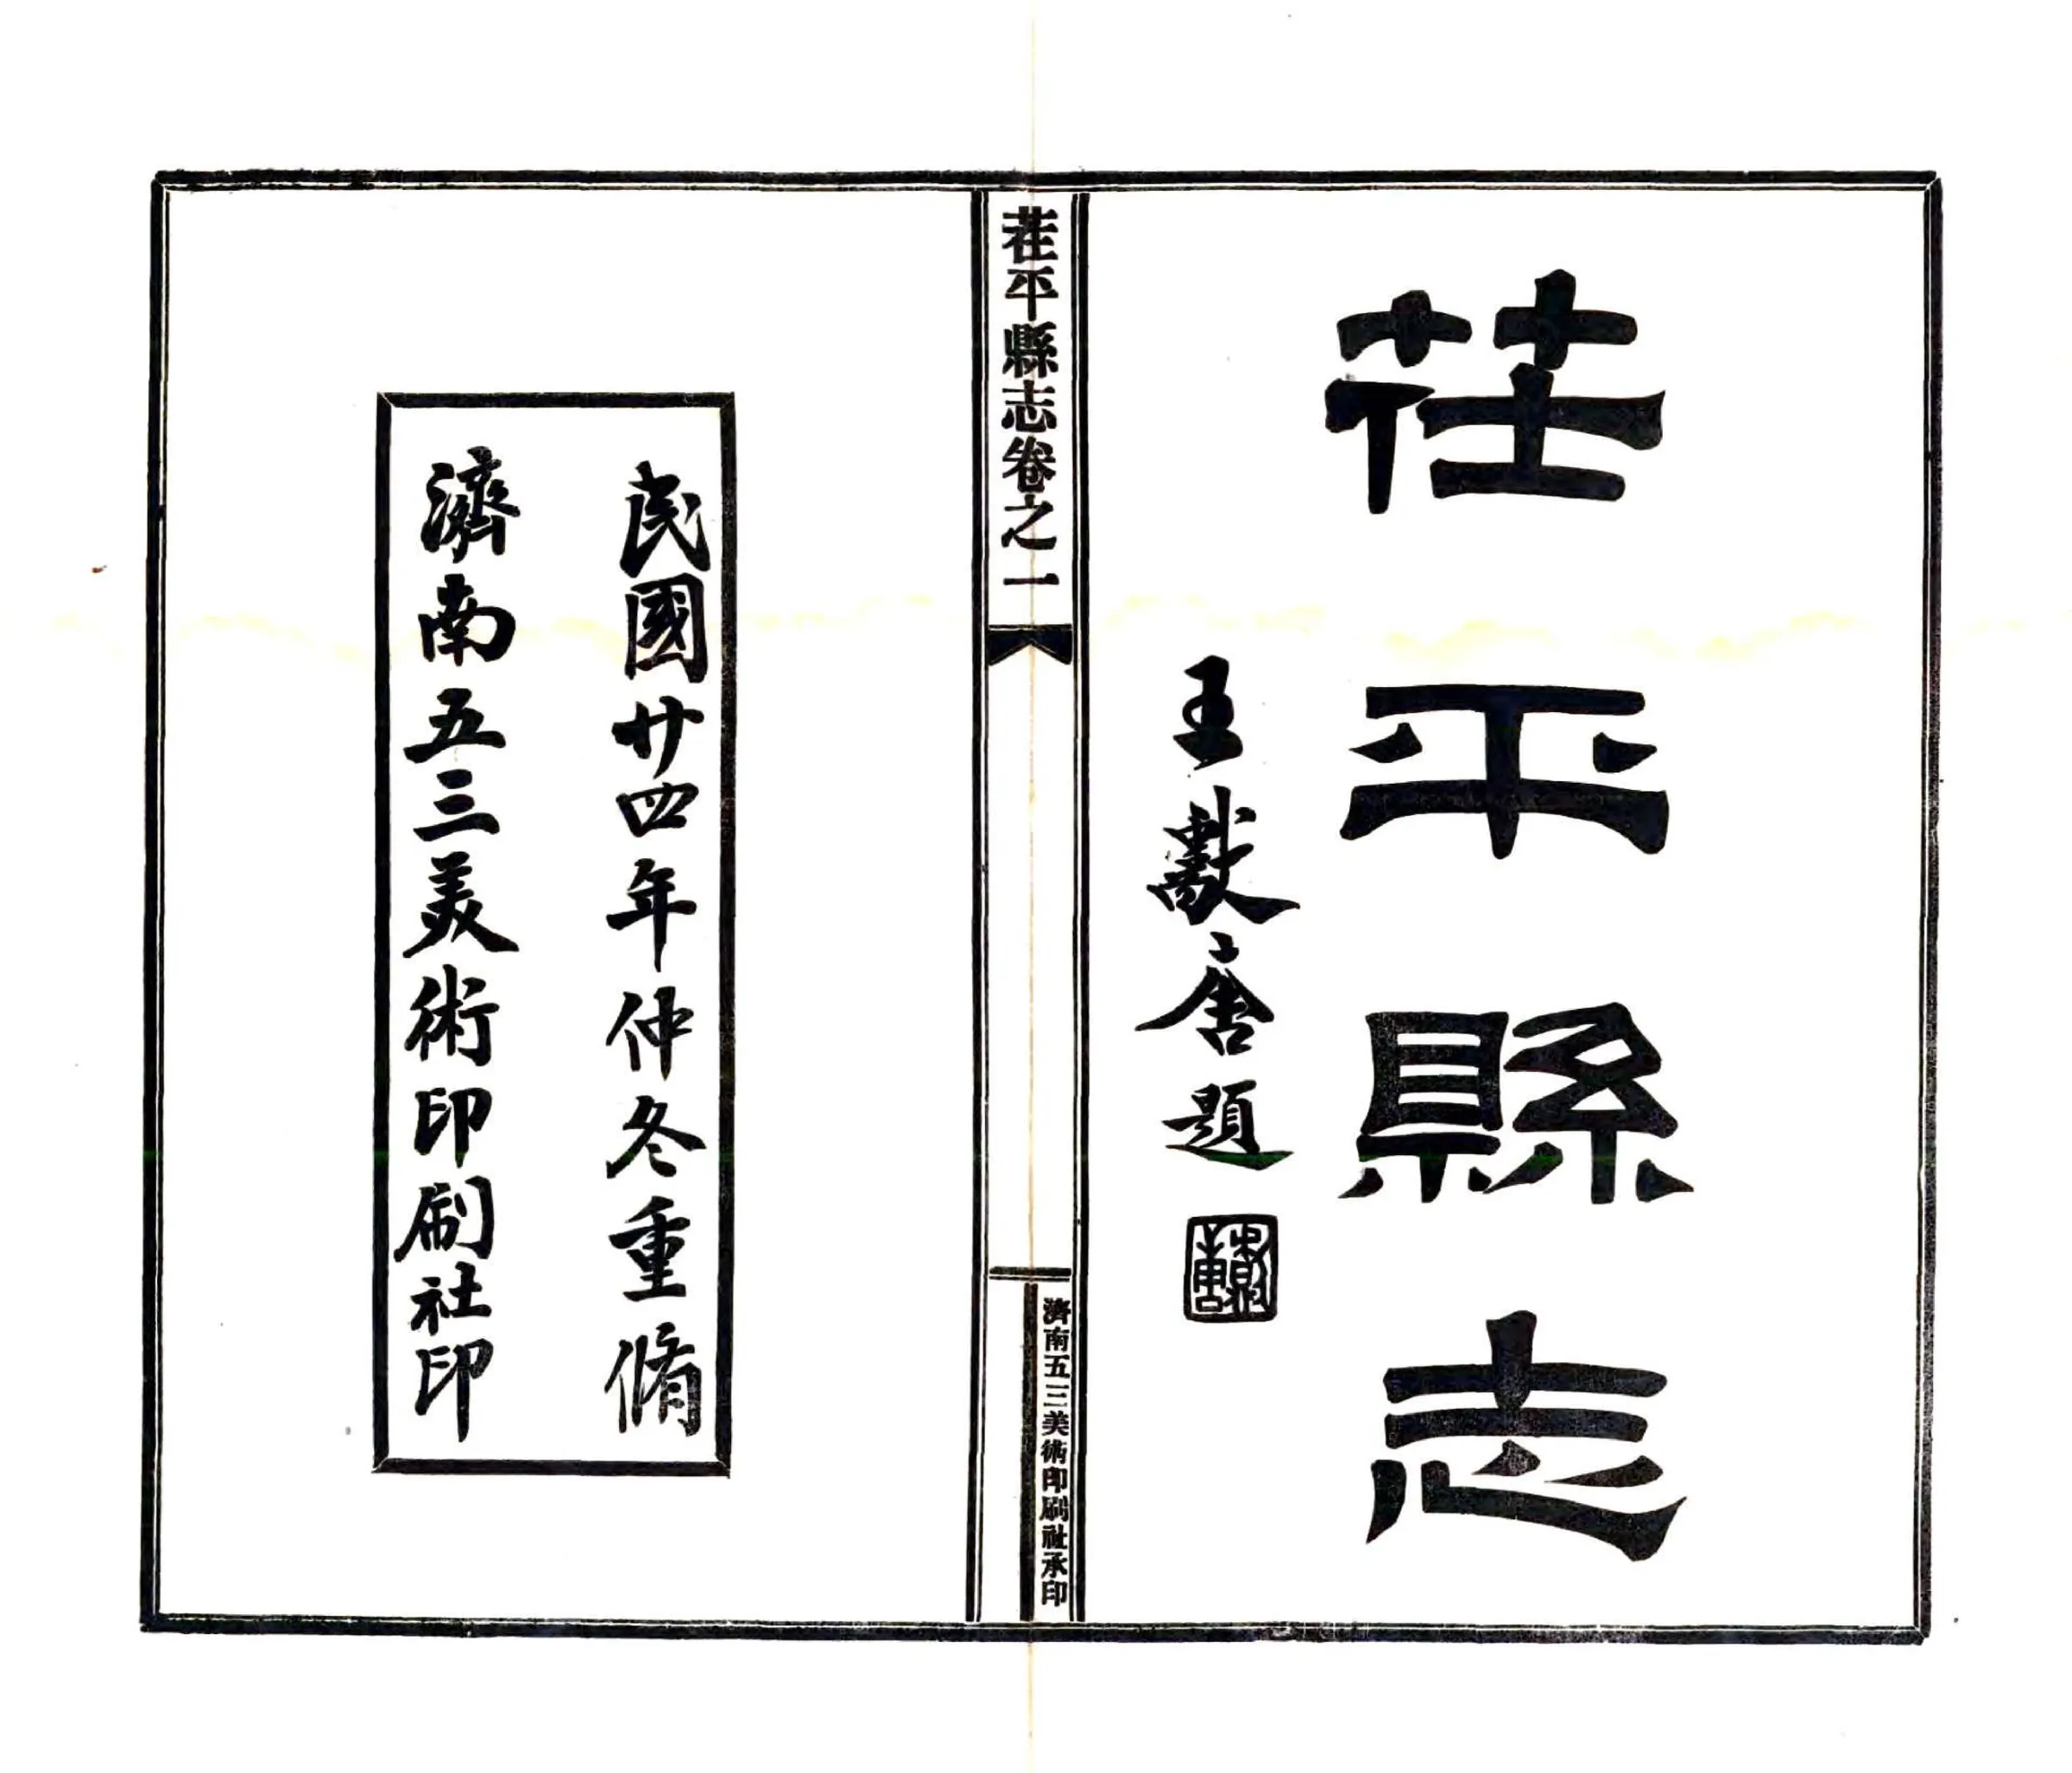 茌平縣志
王獻唐題
茌平縣志卷之一
濟南五三美術印刷社承印
民國廿四年仲冬重脩
濟南五三美術印刷社印